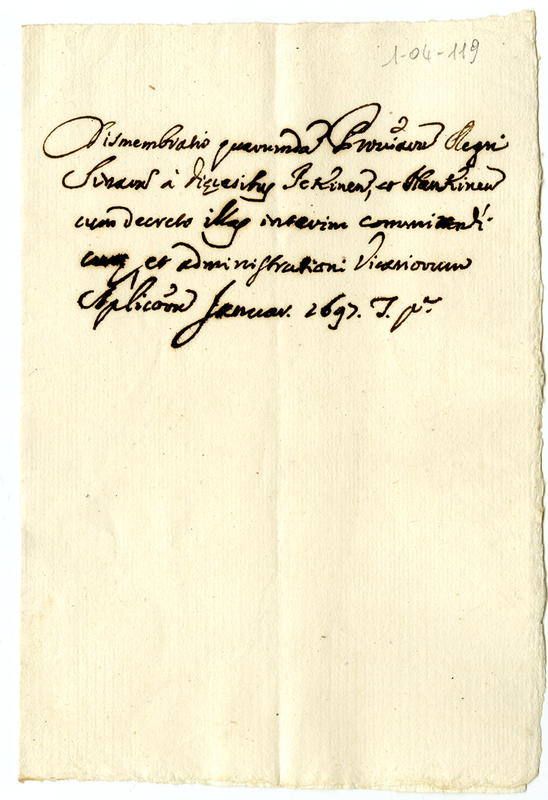 1-04-119
Dismembratio quarumdã Provinciarũ Regni
Sinarũ à Diœcesibus Pekinen, et Nankinen
cum decreto illas interim committendi
et administrationi Vicariorum
Aplicorũ Januar. 1697. J. pr.